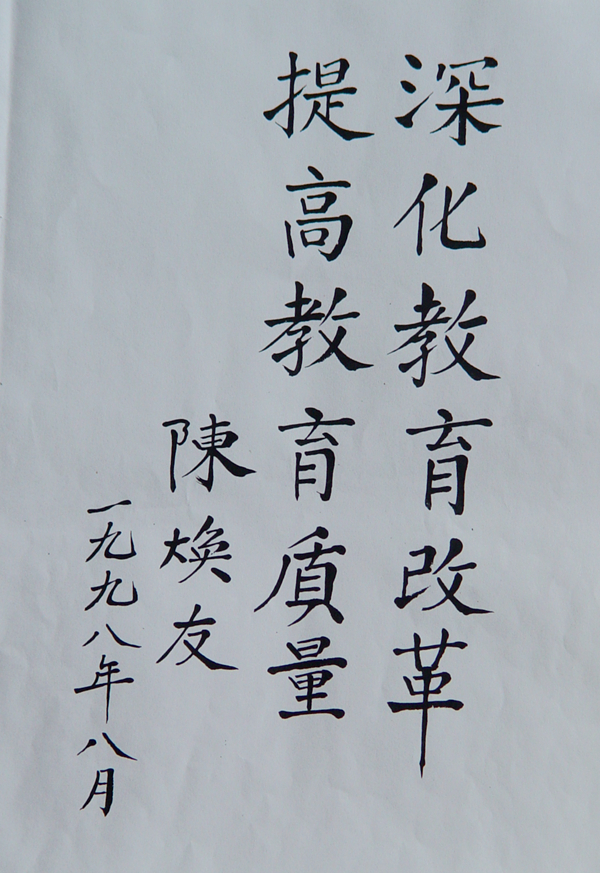 深化教育改革
提高教育质量
陳焕友
一九九八年八月